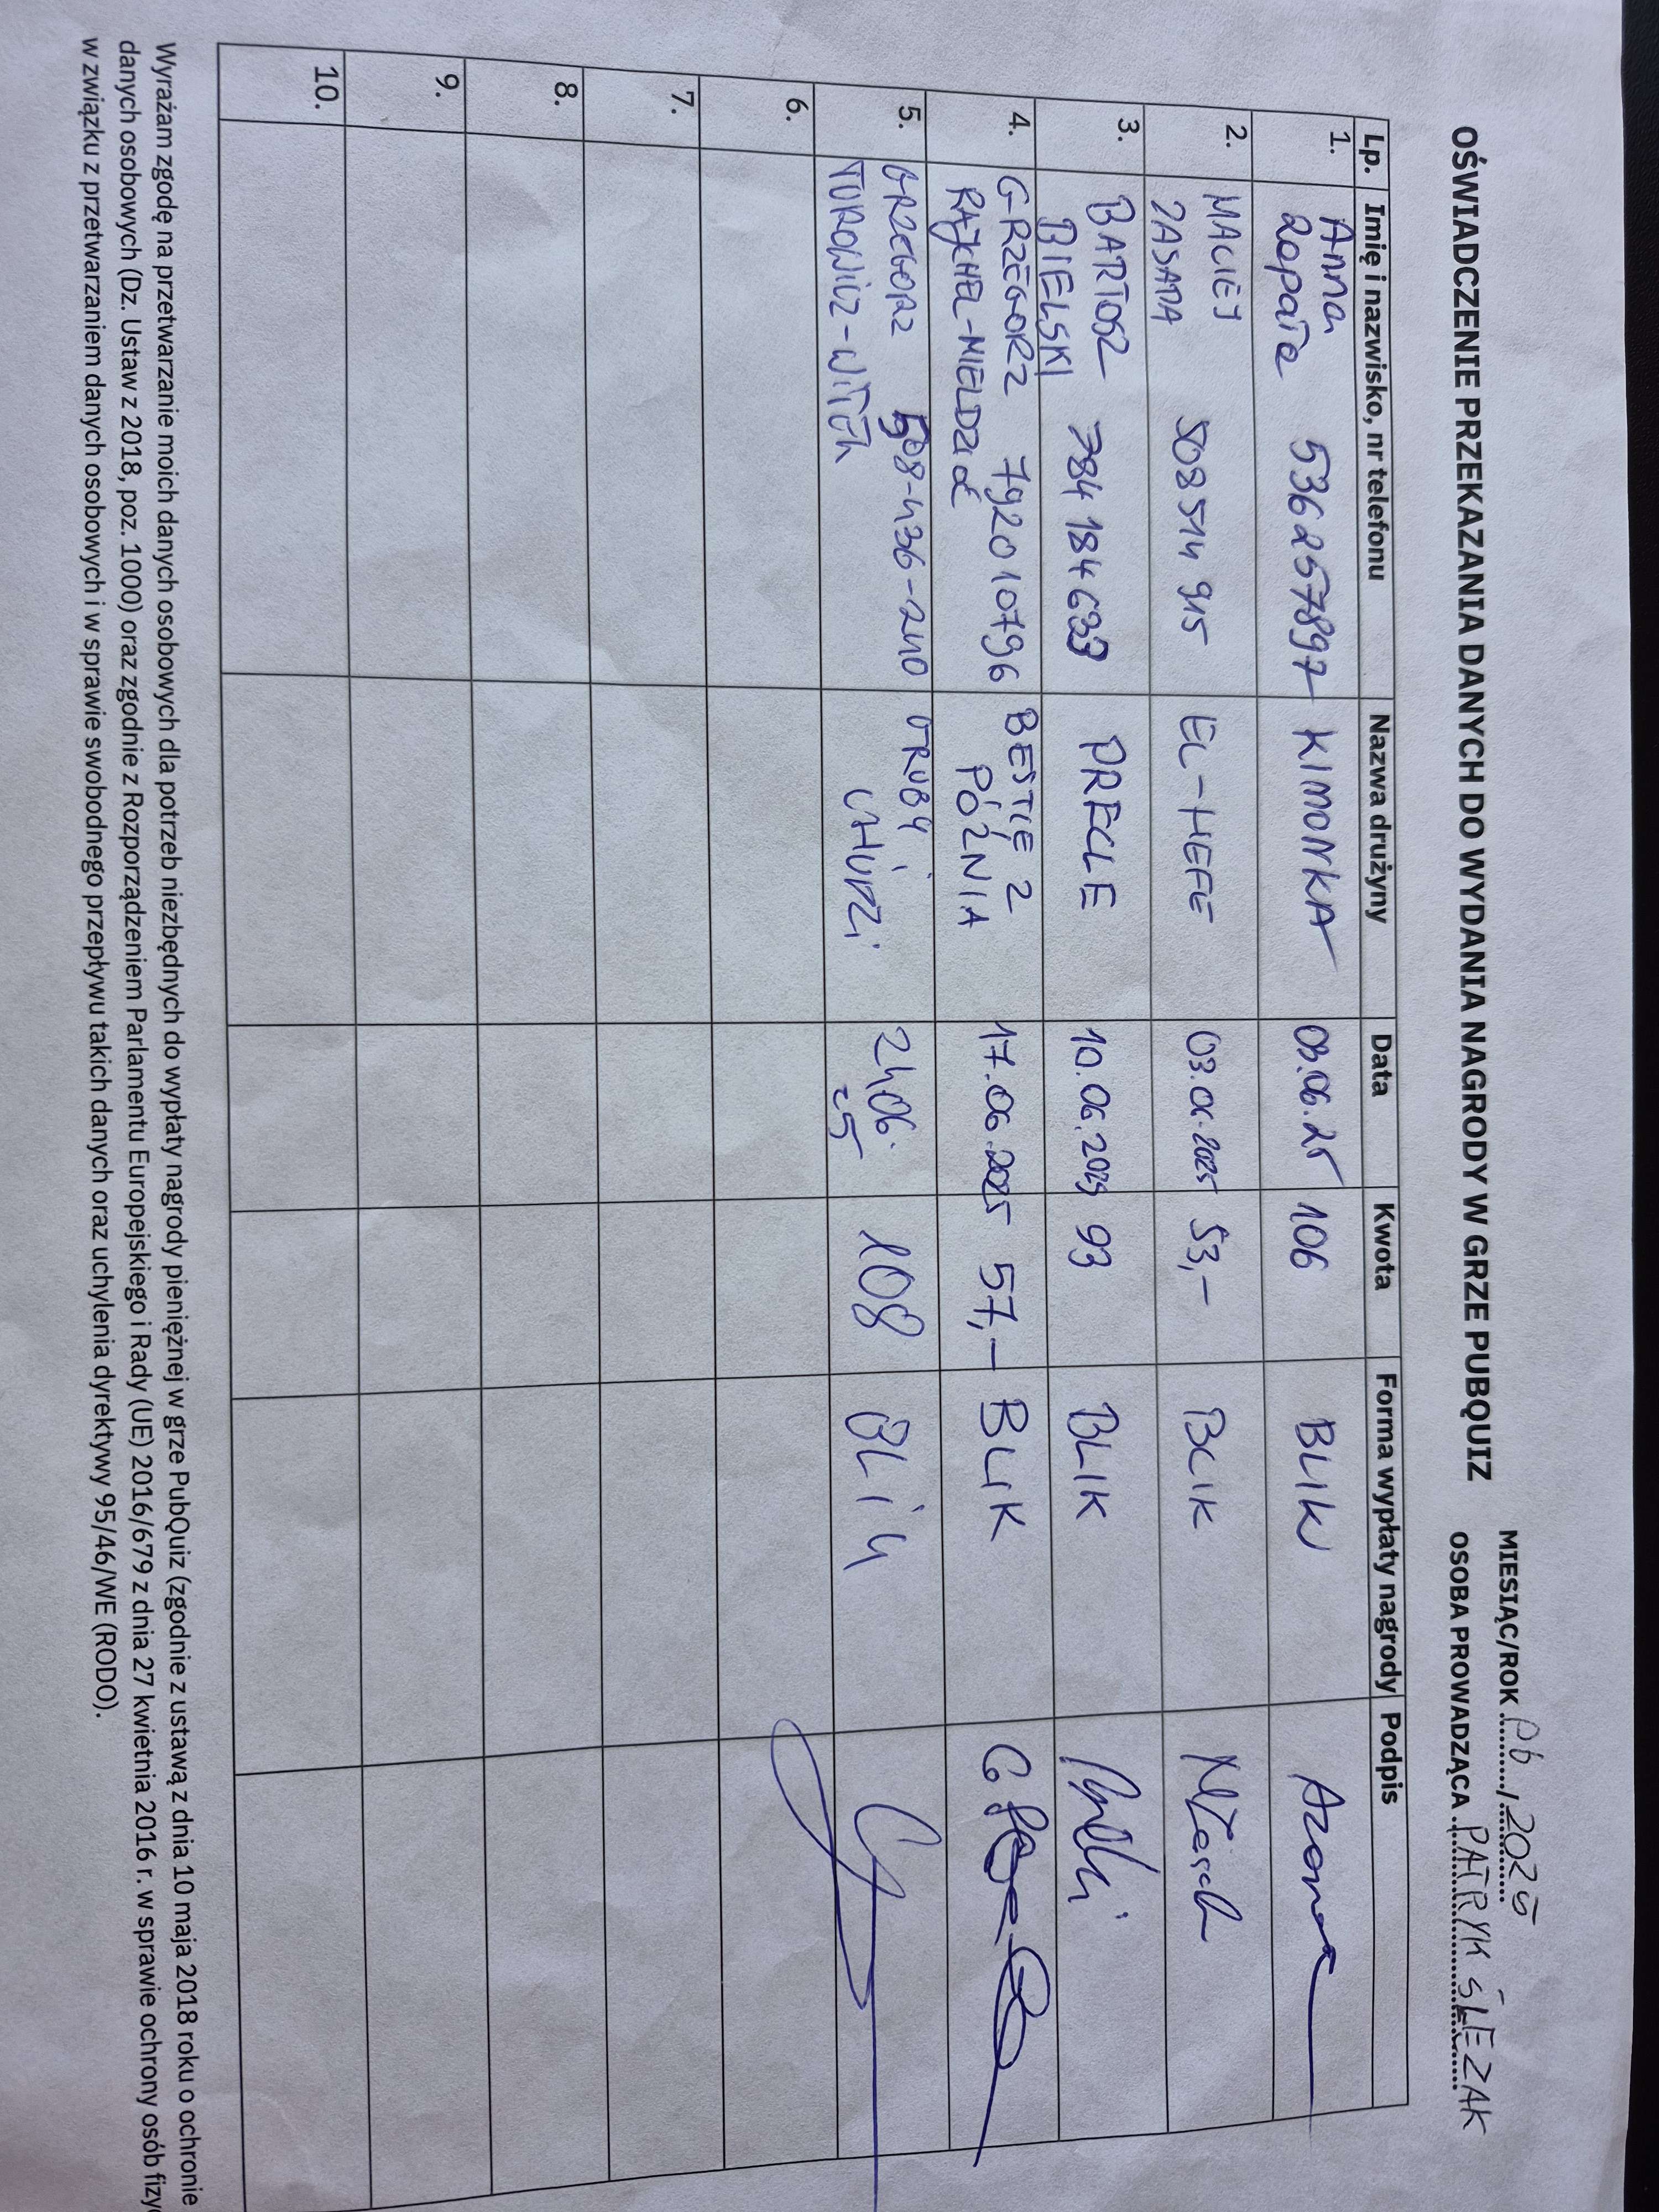 OŚWIADCZENIE PRZEKAZANIA DANYCH DO WYDANIA NAGRODY W GRZE PUBQUIZ
MIESIĄC/ROK 06 / 2025
OSOBA PROWADZĄCA PATRYK ŚLEZAK
Lp. Imię i nazwisko, nr telefonu Nazwa drużyny Data Kwota Forma wypłaty nagrody Podpis
1. Anna 536257897 KIMONKA 03.06.25 106 BLIK
2. MACIEJ 508 514 915 EL-HEFE 03.06.2025 53,- BLIK
ZASADA
3. BARTOSZ 784 184 633 PRECLE 10.06.2025 93 BLIK
BIELSKI
4. GRZEGORZ 792010796 BESTIE Z 17.06.2025 57,- BLIK
RAJCHEL-MIELDZIOĆ PÓŹNIA
5. GRZEGORZ 508-436-240 GRUBY i 24.06. 108 BLiK
TUROWICZ- CHUDZi 25
6.
7.
8.
9.
10.
Wyrażam zgodę na przetwarzanie moich danych osobowych dla potrzeb niezbędnych do wypłaty nagrody pieniężnej w grze PubQuiz (zgodnie z ustawą z dnia 10 maja 2018 roku o ochronie
danych osobowych (Dz. Ustaw z 2018, poz. 1000) oraz zgodnie z Rozporządzeniem Parlamentu Europejskiego i Rady (UE) 2016/679 z dnia 27 kwietnia 2016 r. w sprawie ochrony osób fizyc
w związku z przetwarzaniem danych osobowych i w sprawie swobodnego przepływu takich danych oraz uchylenia dyrektywy 95/46/WE (RODO).